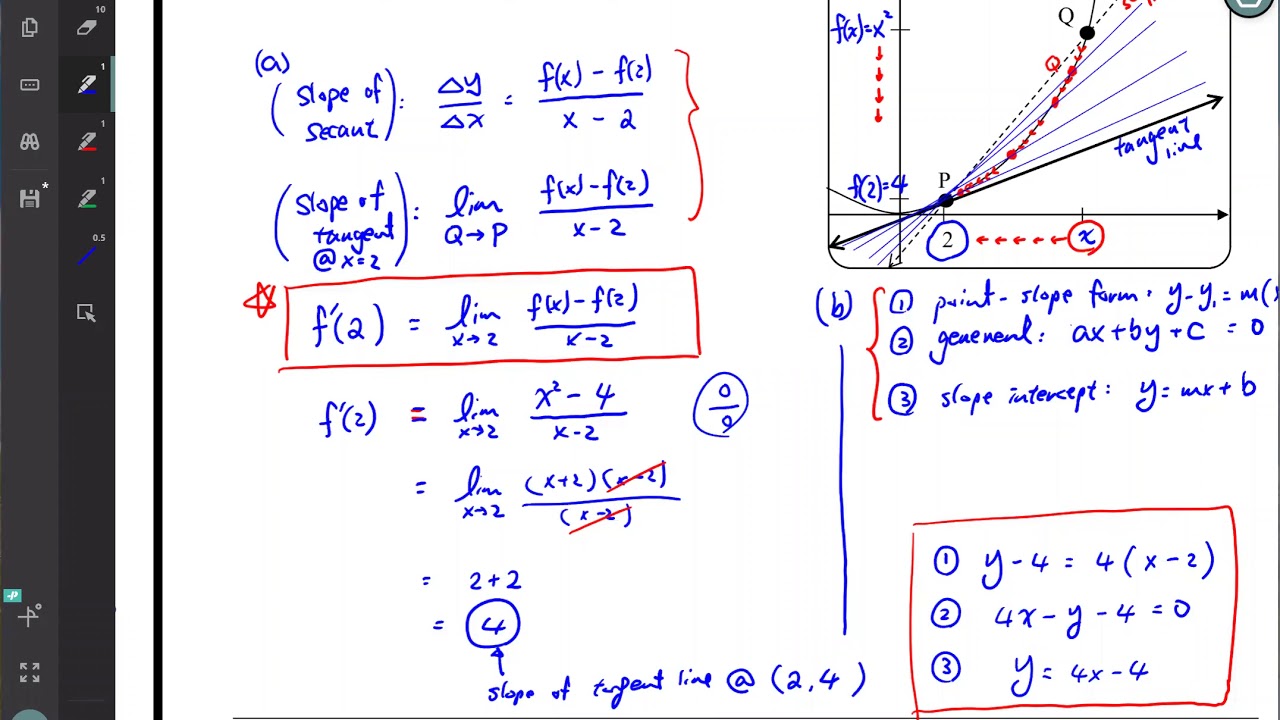 10
1
1
1
0.5
(a)
(slope of secant): Δy/Δx = f(x) - f(2) / x - 2
(slope of tangent @ x=2): lim Q→P f(x) - f(2) / x - 2
f'(2) = lim x→2 f(x) - f(2) / x - 2
f'(2) = lim x→2 x² - 4 / x - 2 0/0
= lim x→2 (x+2)(x-2) / (x-2)
= 2+2
= 4
slope of tangent line @ (2,4)
Q
f(x)=x²
Q
tangent line
f(2)=4
P
2
x
(b)
① point-slope form: y-y₁ = m(
② geneneral: ax+by+c = 0
③ slope intercept: y = mx + b
① y-4 = 4(x-2)
② 4x-y-4 = 0
③ y = 4x-4